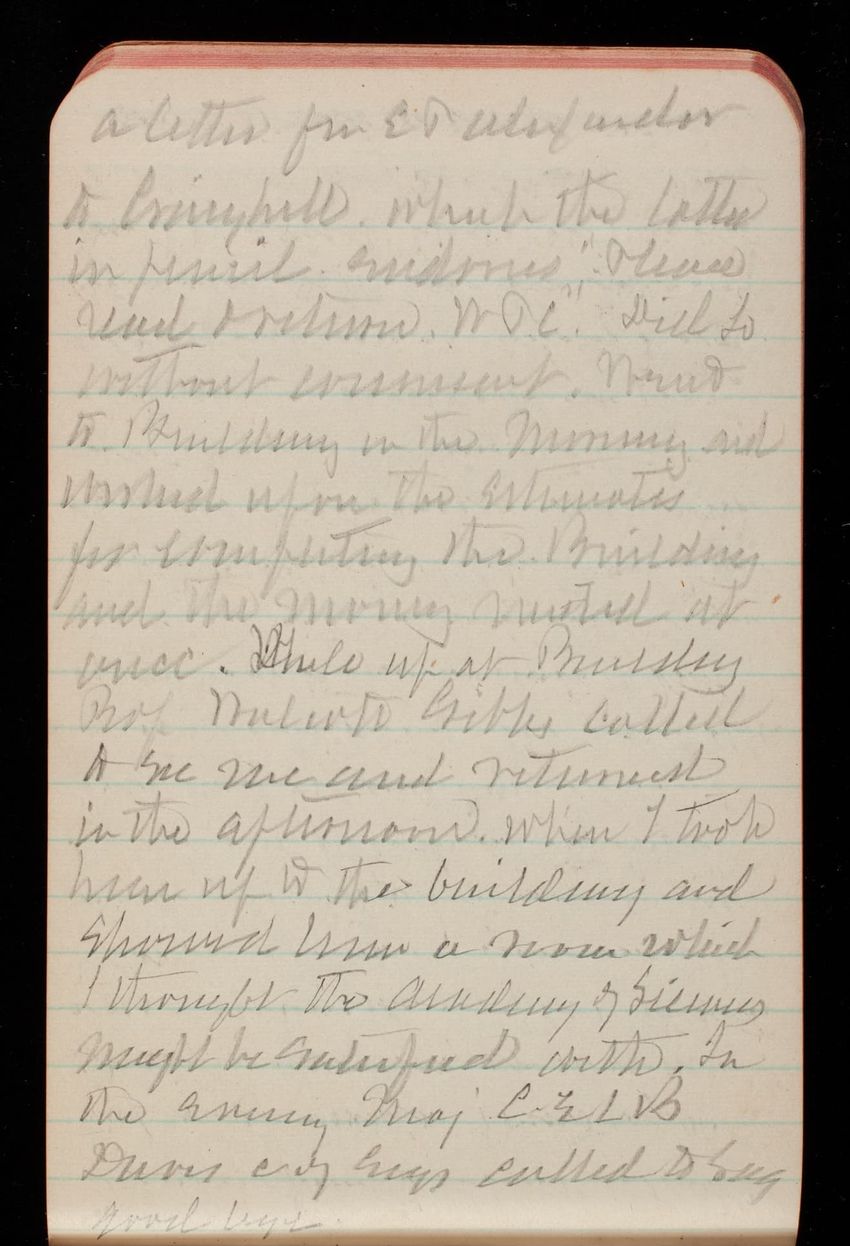 a letter fm E P Alexander
to Craighill. which the latter
in pencil endorses "Please
read & return. W P C". Did so
without comment. Went
to Building in the Morning and
worked upon the Estimates
for completing the Building
and the money needed at
once. While up at Building
Prof Wolcott Gibbs called
to see me and returned
in the afternoon. when I took
him up to the building and
showed him a room which
I thought the Academy of Sciences
might be satisfied with. In
the evening Maj C E L B
Davis C of Engs called to say
good bye.